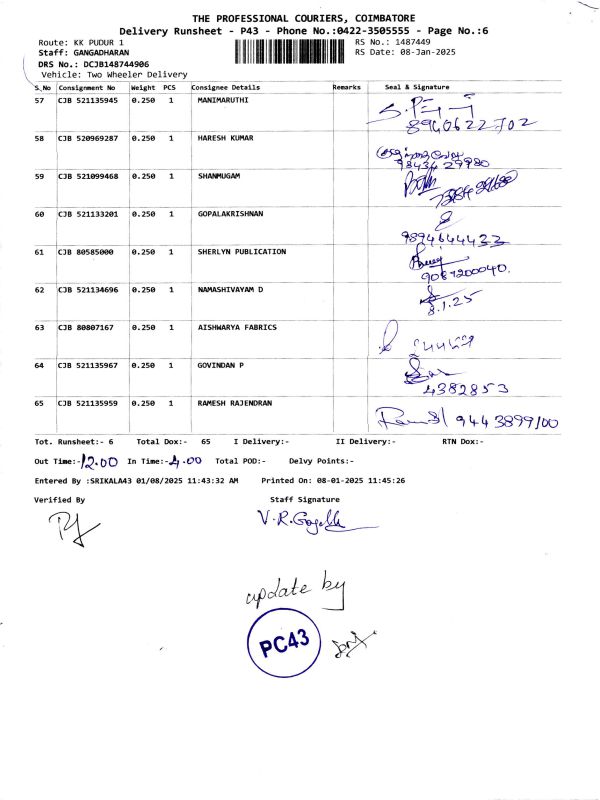 THE PROFESSIONAL COURIERS, COIMBATORE
Delivery Runsheet - P43 - Phone No.:0422-3505555 - Page No.:6
Route: KK PUDUR 1 RS No.: 1487449
Staff: GANGADHARAN RS Date: 08-Jan-2025
DRS No.: DCJB148744906
Vehicle: Two Wheeler Delivery
S.No Consignment No Weight PCS Consignee Details Remarks Seal & Signature
57 CJB 521135945 0.250 1 MANIMARUTHI
8940622702
58 CJB 520969287 0.250 1 HARESH KUMAR
9843429980
59 CJB 521099468 0.250 1 SHANMUGAM
60 CJB 521133201 0.250 1 GOPALAKRISHNAN
9894644433
61 CJB 80585000 0.250 1 SHERLYN PUBLICATION
9087200040.
62 CJB 521134696 0.250 1 NAMASHIVAYAM D
8.1.25
63 CJB 80807167 0.250 1 AISHWARYA FABRICS
64 CJB 521135967 0.250 1 GOVINDAN P
4382853
65 CJB 521135959 0.250 1 RAMESH RAJENDRAN
9443899100
Tot. Runsheet:- 6 Total Dox:- 65 I Delivery:- II Delivery:- RTN Dox:-
Out Time:-12.00 In Time:-4.00 Total POD:- Delvy Points:-
Entered By :SRIKALA43 01/08/2025 11:43:32 AM Printed On: 08-01-2025 11:45:26
Verified By Staff Signature
update by
PC43